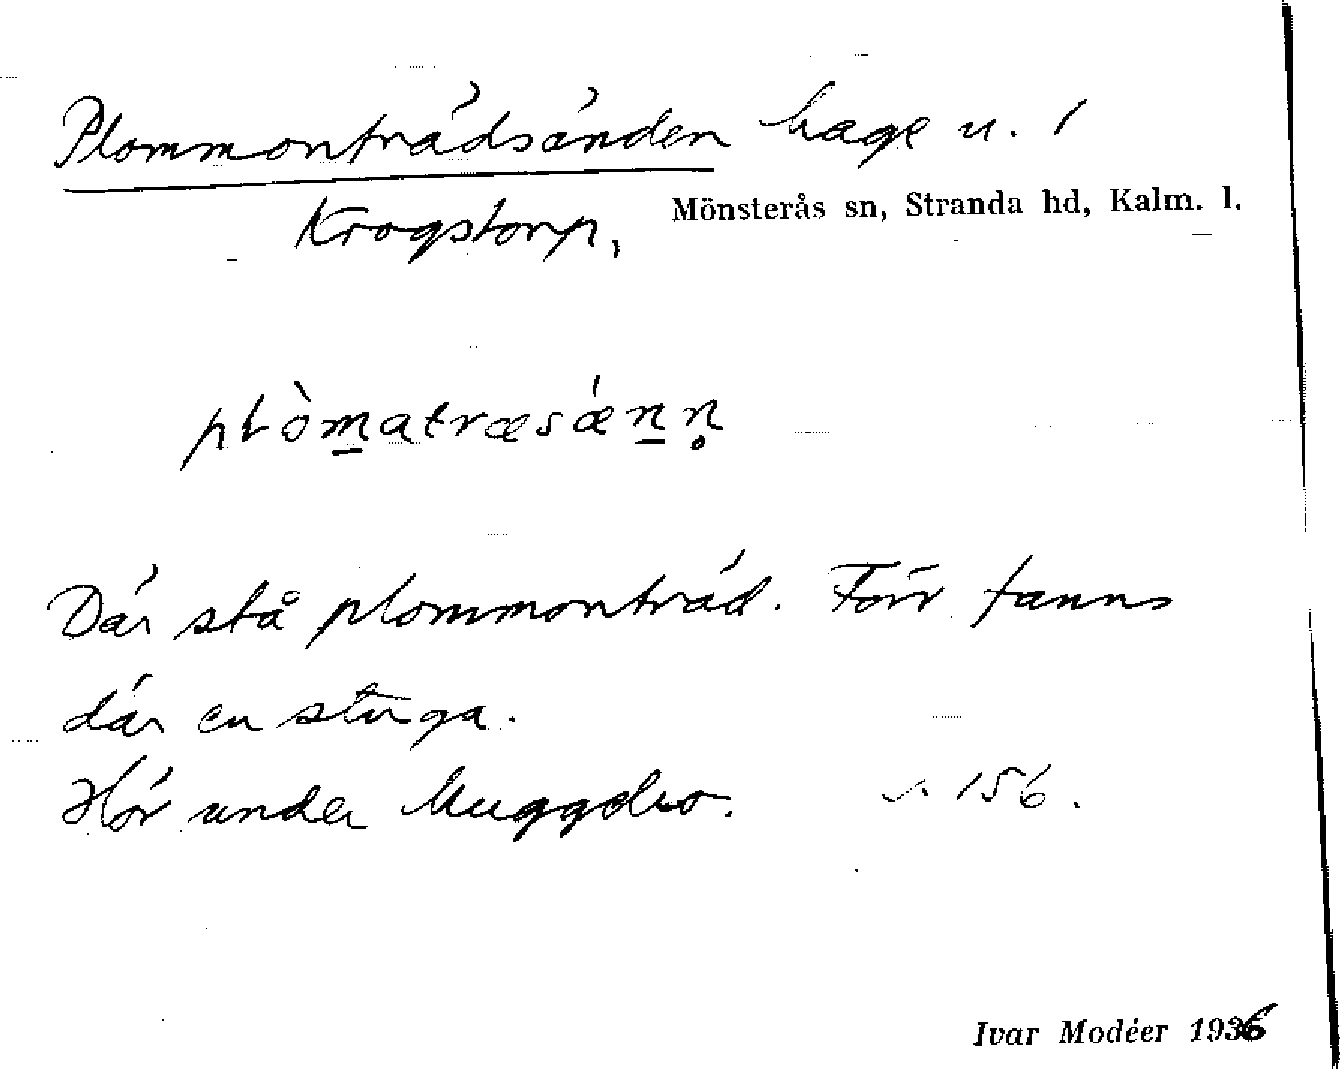 Plommonträdsänden hage u. 1
Krogstorp, Mönsterås sn, Stranda hd, Kalm. l.
plòmatræsǽnn̥
Där stå plommonträd. Förr fanns
där en stuga.
Hör under Muggebo. 156.
Ivar Modéer 1936